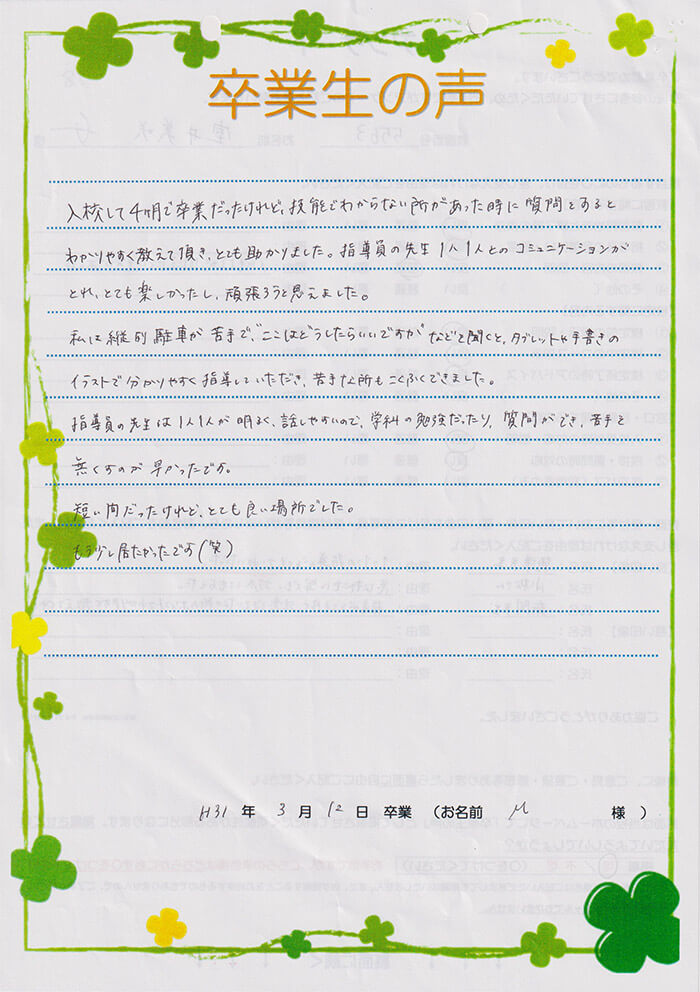 卒業生の声
入校して4ヶ月で卒業だったけれど、技能でわからない所があった時に質問をすると
わかりやすく教えて頂き、とても助かりました。指導員の先生1人1人とのコミュニケーションが
とれ、とても楽しかったし、頑張ろうと思えました。
私は縦列駐車が苦手で、"ここはどうしたらいいですか"などと聞くと、タブレットや手書きの
イラストで分かりやすく指導していただき、苦手な所もこくふくできました。
指導員の先生は1人1人が明るく、話しやすいので、学科の勉強だったり、質問ができ、苦手を
無くすのが早かったです。
短い間だったけれど、とても良い場所でした。
もう少し居たかったです(笑)
H31 年 3 月 12 日 卒業 (お名前 M 様 )